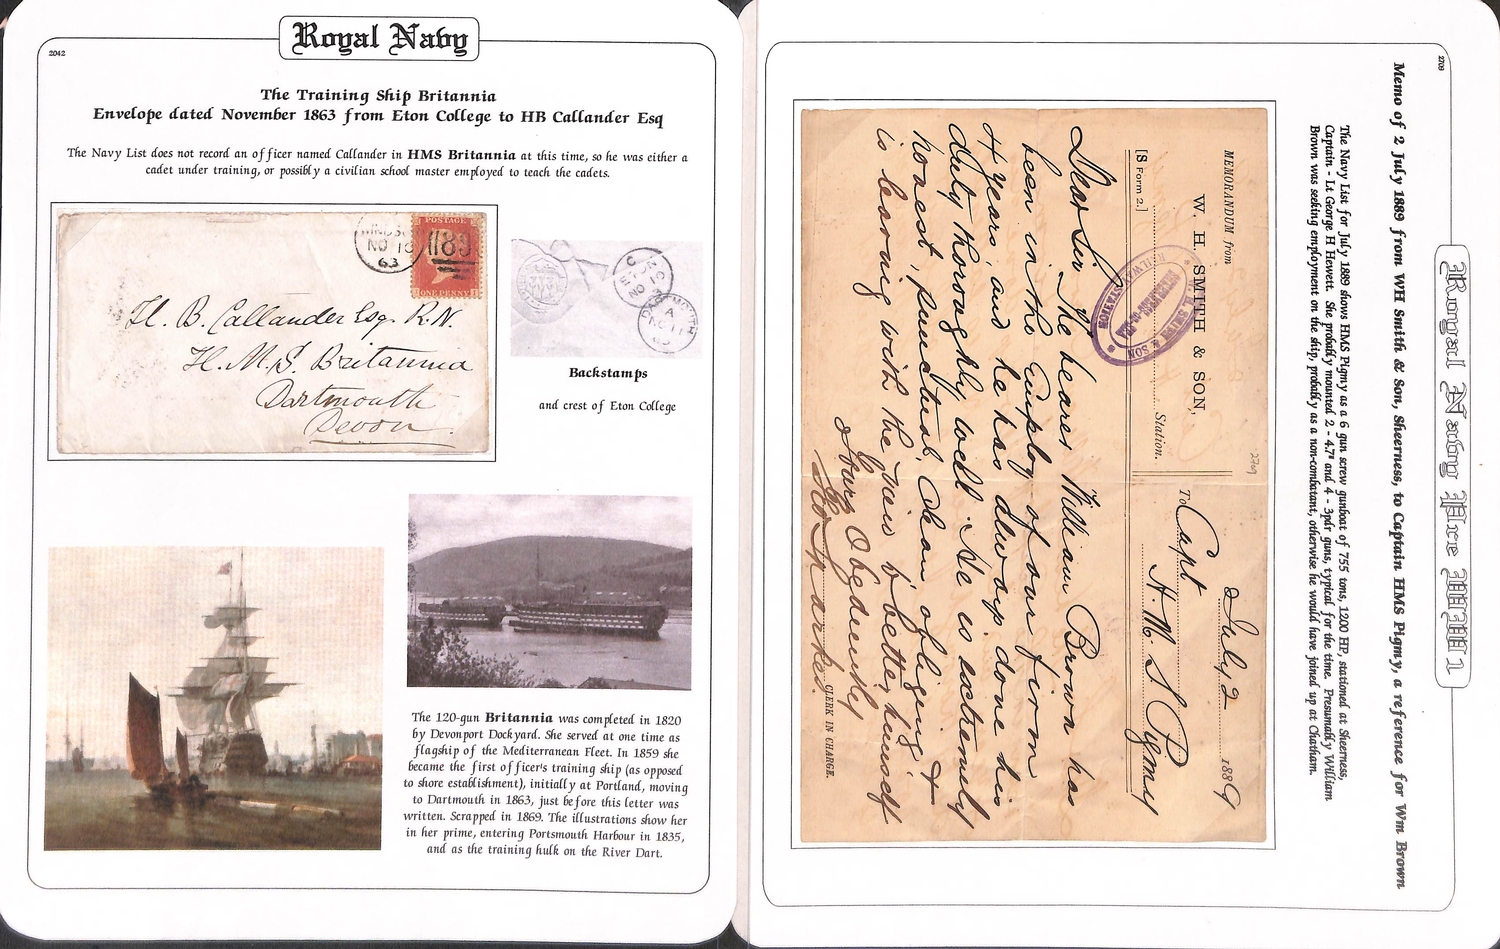 2042
Royal Navy
The Training Ship Britannia
Envelope dated November 1863 from Eton College to HB Callander Esq
The Navy List does not record an officer named Callander in HMS Britannia at this time, so he was either a
cadet under training, or possibly a civilian school master employed to teach the cadets.
NO 18
63
POSTAGE
ONE PENNY
H. B. Callander Esq. R.N.
H.M.S. Britannia
Dartmouth
Devon
DARTMOUTH
A
Backstamps
and crest of Eton College
The 120-gun Britannia was completed in 1820
by Devonport Dockyard. She served at one time as
flagship of the Mediterranean Fleet. In 1859 she
became the first officer's training ship (as opposed
to shore establishment), initially at Portland, moving
to Dartmouth in 1863, just before this letter was
written. Scrapped in 1869. The illustrations show her
in her prime, entering Portsmouth Harbour in 1835,
and as the training hulk on the River Dart.
2709
Royal Navy Pre WW1
Memo of 2 July 1889 from WH Smith & Son, Sheerness, to Captain HMS Pigmy, a reference for Wm Brown
The Navy List for July 1889 shows HMS Pigmy as a 6 gun screw gunboat of 755 tons, 1200 HP, stationed at Sheerness,
Captain - Lt George H Hewett. She probably mounted 2 - 4.7" and 4 - 3pdr guns, typical for the time. Presumably William
Brown was seeking employment on the ship, probably as a non-combatant, otherwise he would have joined up at Chatham.
2709
MEMORANDUM from
W. H. SMITH & SON,
Station.
[S Form 2.]
W. H. SMITH & SON
RAILWAY STATION
July 2 1889
To Capt
H. M. S Pigmy
Dear Sir The bearer William Brown has
been in the employ of our firm
4 years, and he has always done his
duty thoroughly well. He is extremely
honest, punctual, clean obliging, &
is leaving with the view to better himself
Yours Obediently
CLERK IN CHARGE.